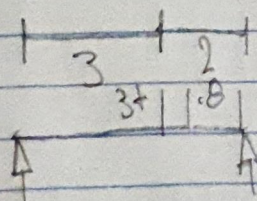 3 2
3t .8